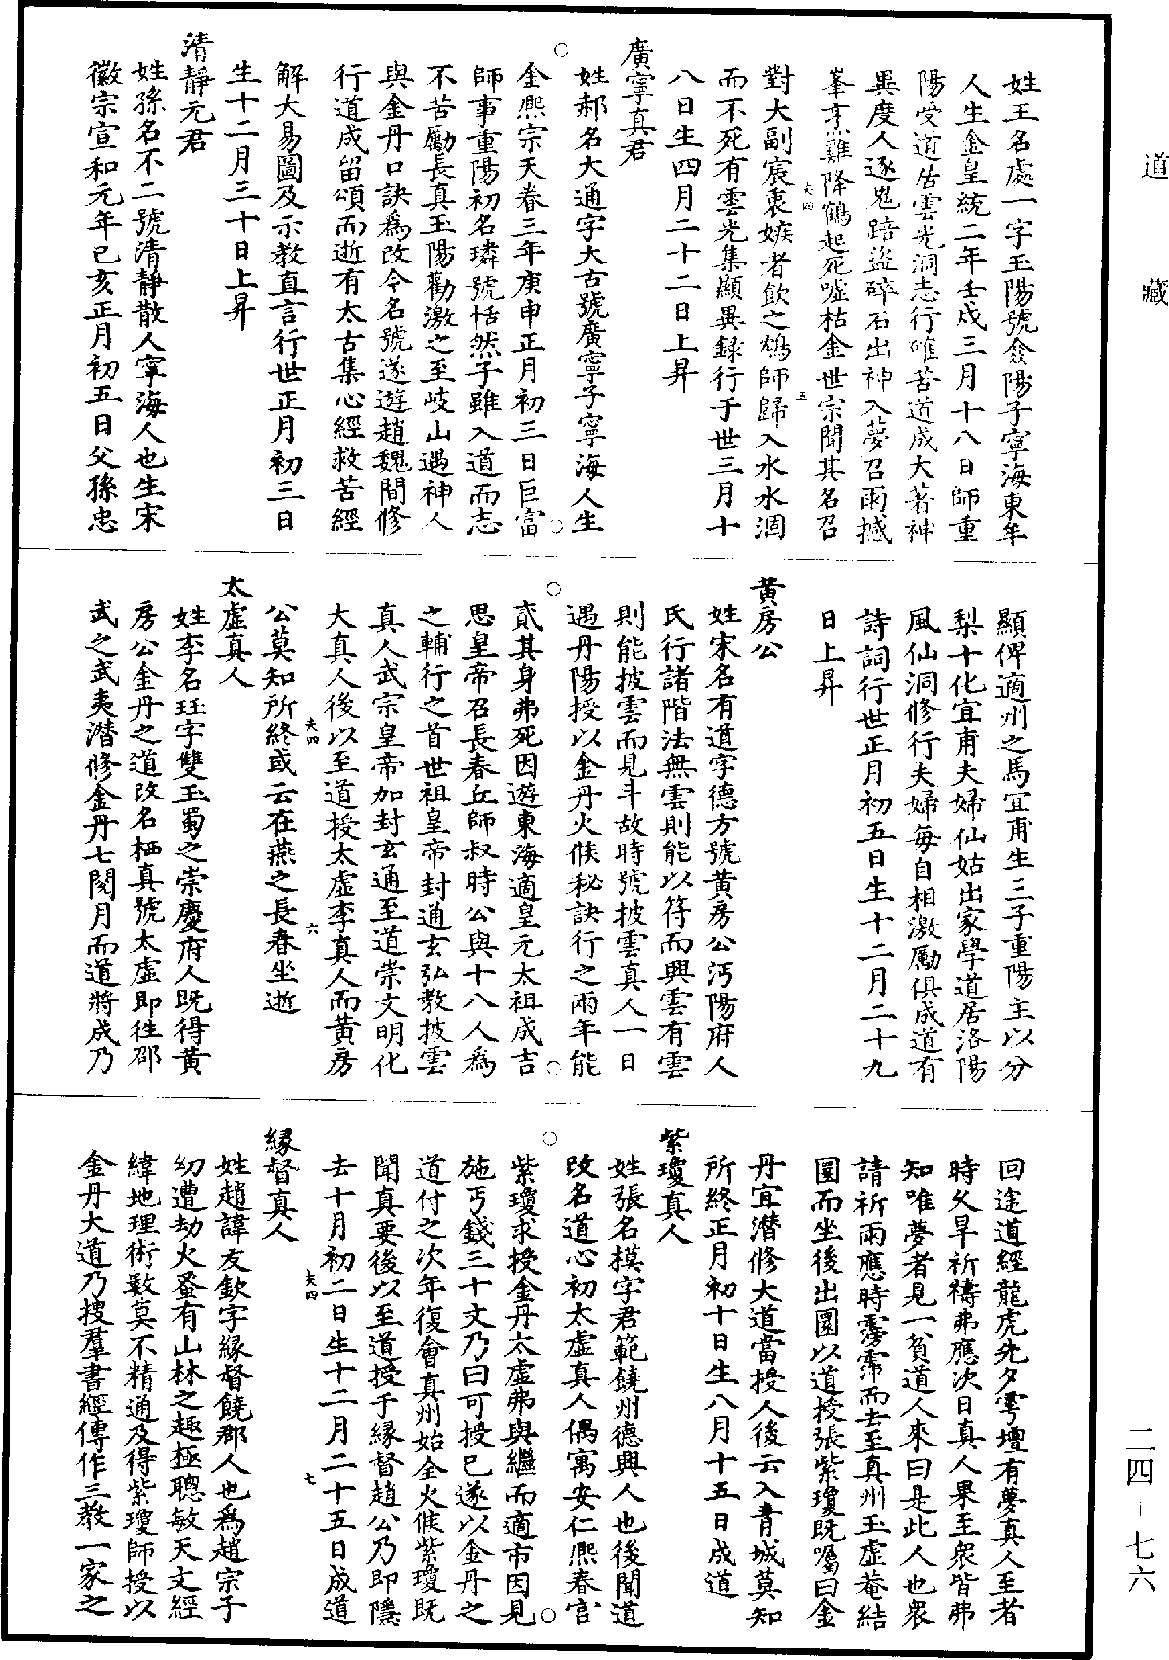 道藏
姓王名處一字玉陽號全陽子寧海東牟
人生金皇統二年壬戌三月十八日師重
陽受道居雲光洞志行確苦道成大著神
異度人逐鬼踣盜碎石出神入夢召雨撼
峯烹雞降鶴起死噓枯金世宗聞其名召
夫四
五
對大副宸衷嫉者飲之鴆師歸入水水涸
而不死有雲光集顯異録行于世三月十
八日生四月二十二日上昇
廣寧真君
姓郝名大通字大古號廣寧子寧海人生
金熙宗天眷三年庚申正月初三日巨富
師事重陽初名璘號恬然子雖入道而志
不苦勵長真玉陽勸激之至岐山遇神人
與金丹口訣為改今名號遂遊趙魏間修
行道成留頌而逝有太古集心經救苦經
解大易圖及示教直言行世正月初三日
生十二月三十日上昇
清靜元君
姓孫名不二號清靜散人寧海人也生宋
徽宗宣和元年己亥正月初五日父孫忠
顯俾適州之馬宜甫生三子重陽主以分
梨十化宜甫夫婦仙姑出家學道居洛陽
風仙洞修行夫婦每自相激勵俱成道有
詩詞行世正月初五日生十二月二十九
日上昇
黃房公
姓宋名有道字德方號黃房公沔陽府人
氏行諸階法無雲則能以符而興雲有雲
則能披雲而見斗故時號披雲真人一日
遇丹陽授以金丹火候秘訣行之兩年能
貳其身弗死因遊東海適皇元太祖成吉
思皇帝召長春丘師叔時公與十八人為
之輔行之首世祖皇帝封通玄弘教披雲
真人武宗皇帝加封玄通至道崇文明化
大真人後以至道授太虛李真人而黃房
夫四
六
公莫知所終或云在燕之長春坐逝
太虛真人
姓李名珏字雙玉蜀之崇慶府人既得黃
房公金丹之道改名栖真號太虛即往邵
武之武夷潛修金丹七閱月而道將成乃
回途道經龍虎先夕雩壇有夢真人至者
時久旱祈禱弗應次日真人果至衆皆弗
知唯夢者見一貧道人來曰是此人也衆
請祈雨應時霶霈而去至真州玉虛菴結
圜而坐後出圜以道授張紫瓊既囑曰金
丹宜潛修大道當授人後云入青城莫知
所終正月初十日生八月十五日成道
紫瓊真人
姓張名摸字君範饒州德興人也後聞道
改名道心初太虛真人偶寓安仁熙春宮
紫瓊求授金丹太虛弗與繼而適市因見
施丐錢三十文乃曰可授已遂以金丹之
道付之次年復會真州始全火候紫瓊既
聞真要後以至道授于緣督趙公乃即隱
夫四
七
去十月初二日生十二月二十五日成道
緣督真人
姓趙諱友欽字緣督饒郡人也為趙宗子
幼遭劫火蚤有山林之趣極聰敏天文經
緯地理術數莫不精通及得紫瓊師授以
金丹大道乃搜羣書經傳作三教一家之
二四-七六